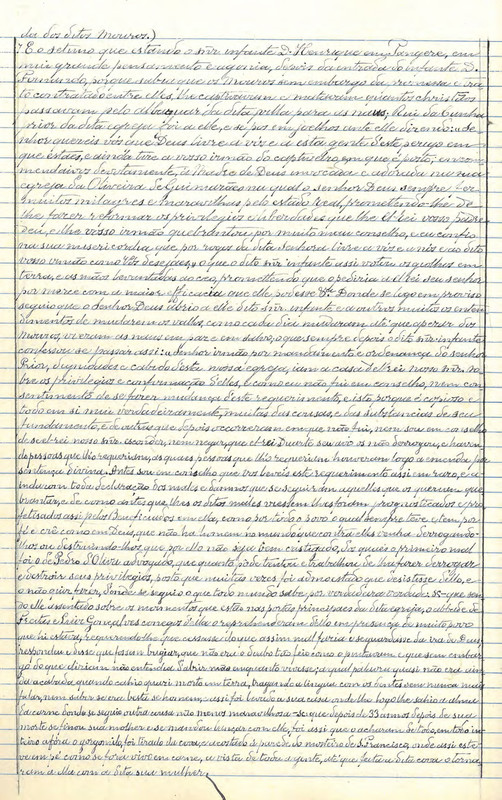 dia dos ditos Mouros.)
7 E o setimo que estando o snr infante D. Henrique em Tangere, em
mui grande pensamento e agonia, depois da entrada do infante D.
Fernando, porque sabia que os Mouros sem embargo da
to contratado entre elles, lhe cativavam e matavam quantos christãos
passavam pelo da dita pelha para as naus; Rui da Cunha
prior da dita egreja foi a elle, e se pos em joelhos ante elle dizendo: se
senhor quereis vós que Deus livre a vós e a esta gente d'este perigo em
que estaes, e ainda tire a vosso irmão do captiveiro em que é posto, encom-
mendaivos devotamente, á Madre de Deus invocada e adorada na sua
egreja da Oliveira de Guimarães na qual o senhor Deus sempre fez
muitos milagres e maravilhas pelo estado real, promettendo-lhe de
lhe fazer reformar os privilegios e liberdades que lhe El-Rei vosso padre
deu, e elhe vosso irmão quebrantou por muito mau conselho, e eu confio
na sua misericordia que por rogos da dita Senhora livre a vós e a nós e ao dito
vosso irmão como vós desejaes, o que o dito snr infante assi votou os joelhos em
terra, e as mãos levantadas ao ceo, promettendo que o pediria a el rei seu senhor
por mercê com a maior efficacia que elle podesse. Donde se logo em proviso
seguio que o senhor Deus abrio a elle dito snr infante e a outros muitos os enten-
dimentos de mudarem os vallos, como cada dia mudavam até que apezar dos
Mouros, vieram as naus em paz e em salvo, o que sempre depois o dito snr infante
confessou se passar assi: a senhor irmão por mandamento e ordenança do senhor
Prior, dignidades e cabido d'esta vossa egreja, iam a casa del rei nosso snr. so-
bre os privilegios e confirmação d'elles, e como eu não fui em conselho, nem con-
sentimento de se fazer mudança d'este requerimento, e isto, porque é copioso e
todo em si mui verdadeiramente, muitas das cousas, e das substancias de seu
fundamento, e de outras que depois occorreram em que não fui, nem sou em conselho
de se el-rei nosso snr. escandor, nem negar, que el rei Duarte seu avô os não derrogou, e houve
de pessoas que lho requeriam, as quaes, pessoas que lho requeriam houveram logo a emenda por
sentença divina. Antes sou em conselho que vos leveis este requerimento assi em razo, e a
inda com toda declaração dos males e damnos que se seguiram a aquelles que os queriam que-
brantar, e de como antes que lhes os ditos males viessem lhes foram prognosticados e pro-
fetisados assi pelos Beneficiados em ella, como por todo o povo o qual sempre teve, e tem, por
fé e crê como em Deus, que não ha homem no mundo que contra elles venha derrogando-
lhos ou destruindo-lhos que por ello não seja bem castigado. Dos quaes o primeiro mal
foi o de Pedro d'Oliv.ra advogado, que quanto pôde tentou e trabalhou de lhe fazer derrogar
e destruir seus privilegios, posto que muitas vezes foi admoestado que desistisse d'ello, e
o não quiz fazer, donde se seguio o que todo mundo sabe por verdadeira verdade. S.- que sen-
do elle assentado sobre os moimentos que estão nas portas principaes da dita egreja, o abbade de
Freitas e Leive Gonçalves conego d'ella o reprehenderam d'ello em presença de muito povo
que hi estava, requerendo-lhe que cessasse do que assim mal fazia e se guardasse da ira de Deus
respondeu e disse que fossem bugiar, que não era o diabo tão feio como o pintavam e que sem embar-
go do que diziam não entendia d'abrir mão enquanto vivesse; a qual palavra quasi não era ain-
da acabada quando cahio quasi morto em terra, tragando a lingua com os dentes sem nunca mais
falar, nem saber se era besta se homem: assi foi levado a sua casa onde lhe logo lhe sahio a alma
da carne donde se seguio outra cousa não menos maravilhosa - Se que depois de 53 annos depois de sua
morte se finou sua molher e se mandou lançar com elle, foi assi que o acharam de todo, em todo in-
teiro afóra o gorgomilo, foi tirado da cova, e acostado á parede do mosteiro de S. Francisco, onde assi este-
ve em pé como se fora vivo em carne, a vista de toda a gente, até que feita a dita cova o torna-
ram a ella com a dita sua mulher.